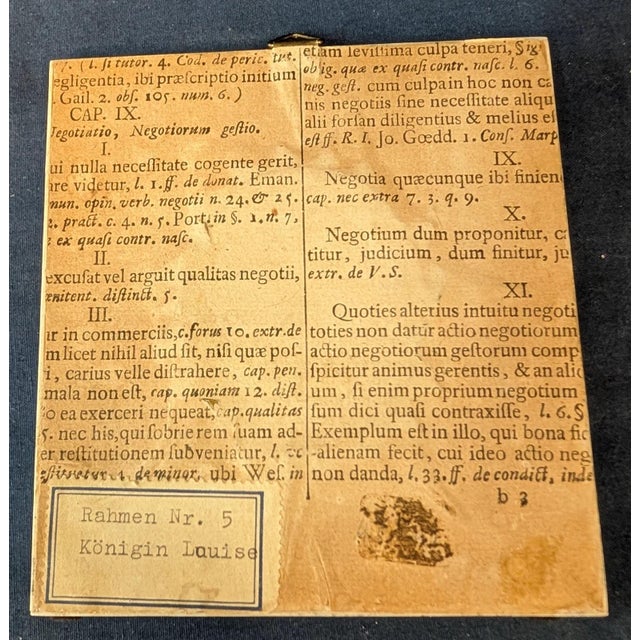 7. (l. si tutor. 4. Cod. de peric. tut.
egligentia, ibi præscriptio initium
Gail. 2. obs. 105. num. 6.)
CAP. IX.
Negotiatio, Negotiorum gestio.
I.
ui nulla necessitate cogente gerit,
are videtur, l. 1. ff. de donat. Eman.
mun. opin. verb. negotii n. 24. & 25.
2. pract. c. 4. n. 5. Port. in §. 1. n. 7,
z ex quasi contr. nasc.
II.
excusat vel arguit qualitas negotii,
œnitent. distinct. 5.
III.
ur in commerciis, c. forus 10. extr. de
m licet nihil aliud sit, nisi quæ pos-
i, carius velle distrahere, cap. pen.
mala non est, cap. quoniam 12. dist.
o ea exerceri nequeat, cap. qualitas
5. nec his, qui sobrie rem suam ad-
er restitutionem subveniatur, l.
1. de minor. ubi Wes. in
etiam levissima culpa teneri, §
oblig. quæ ex quasi contr. nasc. l. 6.
neg. gest. cum culpa in hoc non ca
nis negotiis sine necessitate aliqu
alii forsan diligentius & melius es
est ff. R. I. Jo. Gœdd. 1. Cons. Marp
IX.
Negotia quæcunque ibi finien
cap. nec extra 7. 3. q. 9.
X.
Negotium dum proponitur, c
titur, judicium, dum finitur, ju
extr. de V. S.
XI.
Quoties alterius intuitu negoti
toties non datur actio negotiorum
actio negotiorum gestorum comp
spicitur animus gerentis, & an alic
um, si enim proprium negotium
sum dici quasi contraxisse, l. 6. §
Exemplum est in illo, qui bona fic
-alienam fecit, cui ideo actio neg
non danda, l. 33. ff. de condict. inde
b 3
Rahmen Nr. 5
Königin Louise